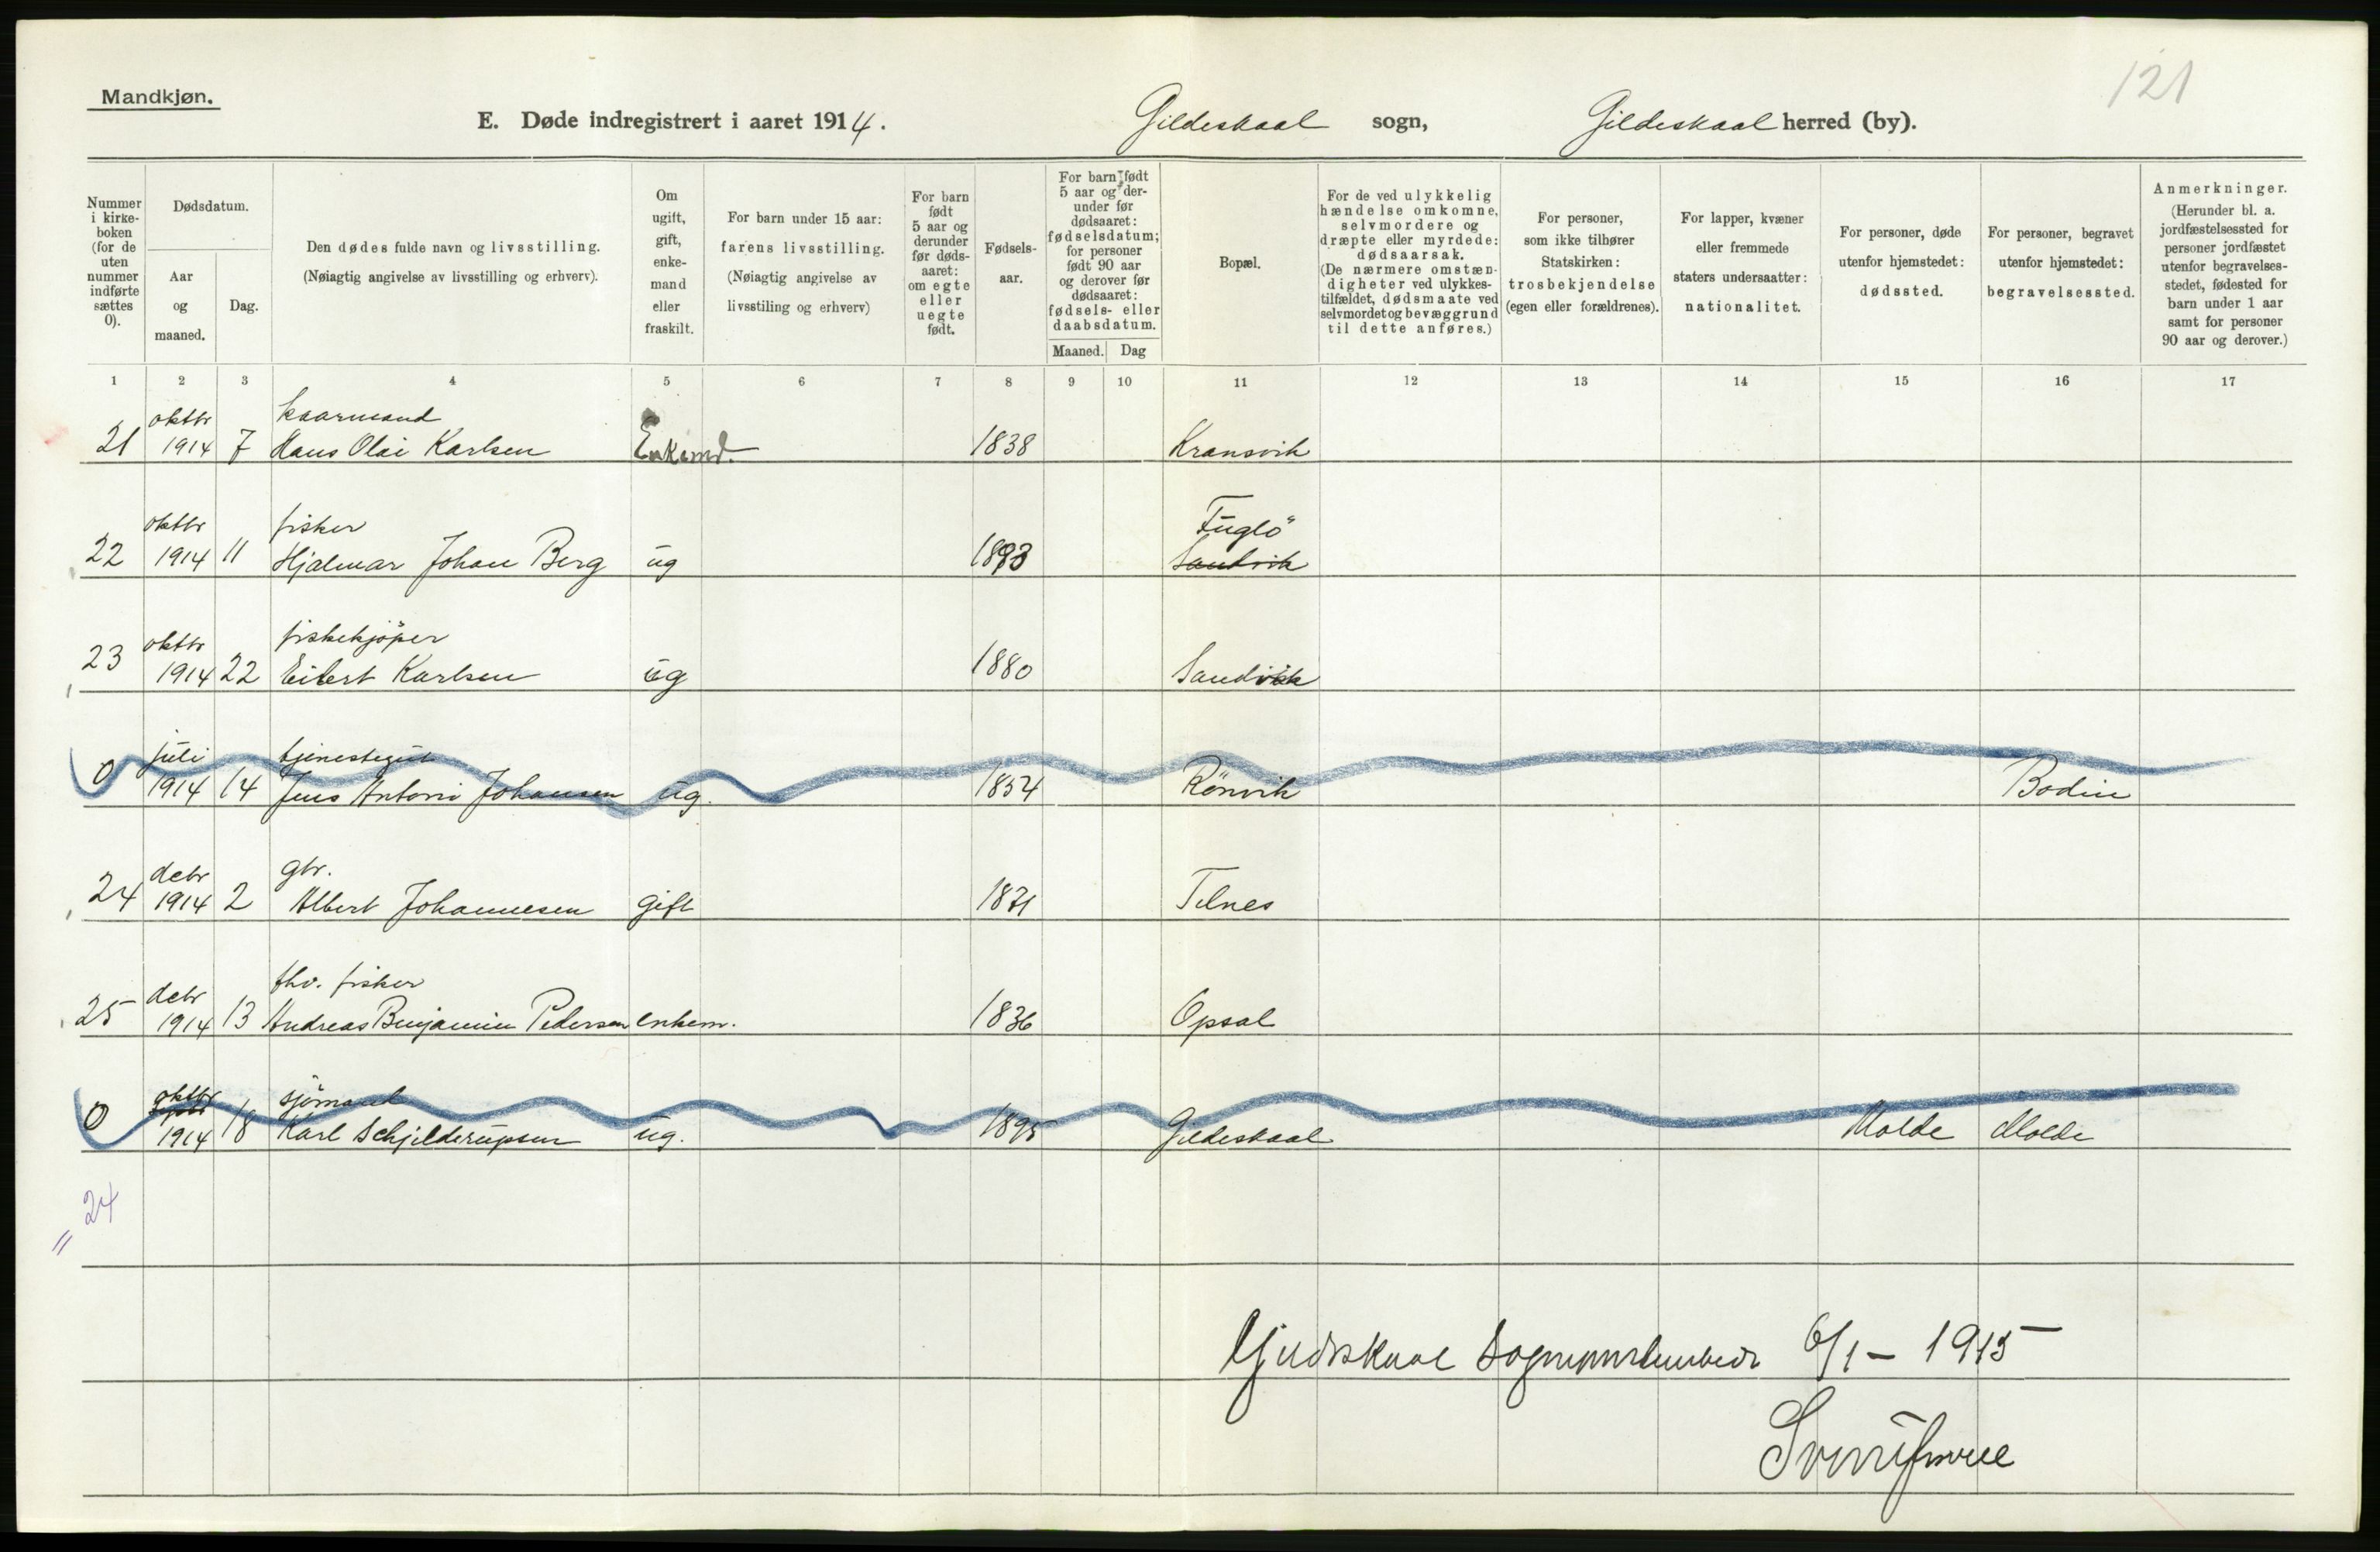 121
Mandkjøn.
E. Døde indregistrert i aaret 1914. Gildeskaal sogn, Gildeskaal herred (by).
Nummer i kirke- boken (for de uten nummer indførte sættes 0).
Dødsdatum.
Aar og maaned.
Dag.
Den dødes fulde navn og livsstilling. (Nøiagtig angivelse av livsstilling og erhverv).
Om ugift, gift, enke- mand eller fraskilt.
For barn under 15 aar: farens livsstilling. (Nøiagtig angivelse av livsstiling og erhverv)
For barn født 5 aar og derunder før døds- aaret: om egte eller uegte født.
Fødsels- aar.
For barn født 5 aar og der- under før dødsaaret: fødselsdatum; for personer født 90 aar og derover før dødsaaret: fødsels- eller daabsdatum.
Maaned. Dag
Bopæl.
For de ved ulykkelig hændelse omkomne, selvmordere og dræpte eller myrdede: dødsaarsak. (De nærmere omstæn- digheter ved ulykkes- tilfældet, dødsmaate ved selvmordet og bevæggrund til dette anføres.)
For personer, som ikke tilhører Statskirken: trosbekjendelse (egen eller forældrenes).
For lapper, kvæner eller fremmede staters undersaatter: nationalitet.
For personer, døde utenfor hjemstedet: dødssted.
For personer, begravet utenfor hjemstedet: begravelsessted.
Anmerkninger. (Herunder bl. a. jordfæstelsessted for personer jordfæstet utenfor begravelses- stedet, fødested for barn under 1 aar samt for personer 90 aar og derover.)
1 2 3 4 5 6 7 8 9 10 11 12 13 14 15 16 17
oktbr kaarmand
21 1914 7 Hans Olai Karlsen Enkemd. 1838 Kransvik
oktbr fisker Fuglö
22 1914 11 Hjalmar Johan Berg ug 1893 Sandvik
oktbr fiskekjöper
23 1914 22 Eilert Karlsen ug 1880 Sandvik
juli tjenestegut
0 1914 14 Jens Antoni Johansen ug. 1854 Rönvik Bodin
debr gbr.
24 1914 2 Albert Johannesen gift 1871 Telnes
debr fhv. fisker
25 1914 13 Andreas Benjamin Pedersen enkem. 1836 Opsal
oktbr sjömand
0 1914 18 Karl Schjelderupsen ug. 1895 Gildeskaal Molde Molde
24
Gildeskaal Sogneprestembede 6/1 - 1915